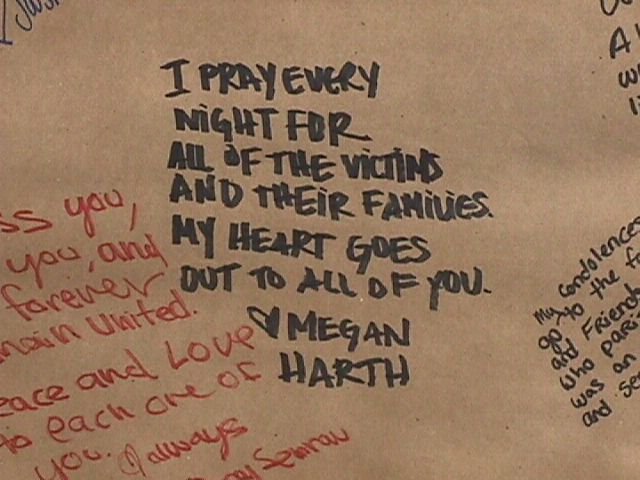 I PRAY EVERY
NIGHT FOR
ALL OF THE VICTIMS
AND THEIR FAMILIES.
MY HEART GOES
OUT TO ALL OF YOU.
♥ MEGAN
HARTH
you,
you, and
forever
United.
and Love
to each one of
you. always
My condolences
go to the
and Friends
who
was an
and